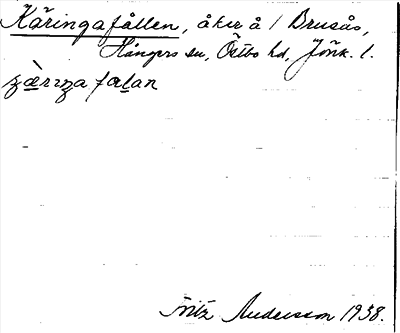 Käringafållen, åker å 1 Brusås,
Hångers sn, Östbo hd, Jönk. l.
falan
Fritz Andersson 1938.